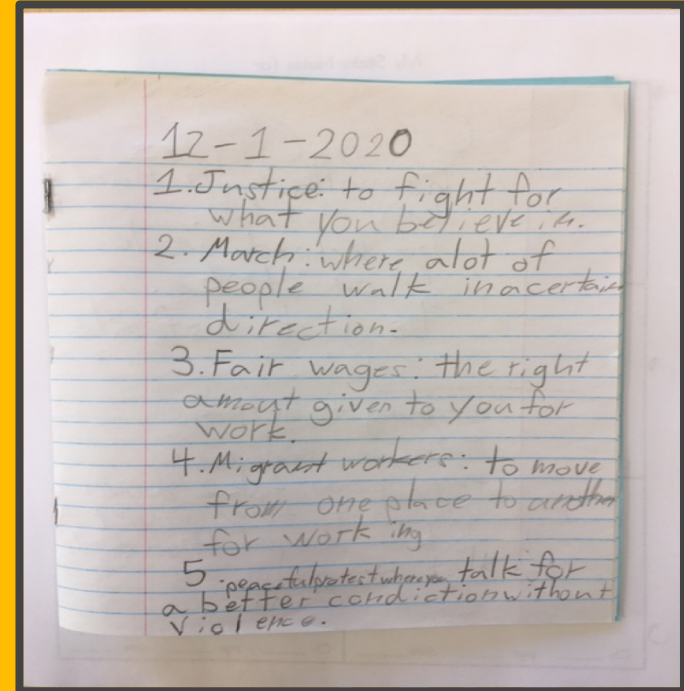 12-1-2020
1. Justice: to fight for
what you believe in.
2. March: where alot of
people walk inacertain
direction.
3. Fair wages: the right
amout given to you for
work.
4. Migrant workers: to move
from one place to another
for work ing
5. peacefulprotest where you talk for
a better condictionwithout
violence.